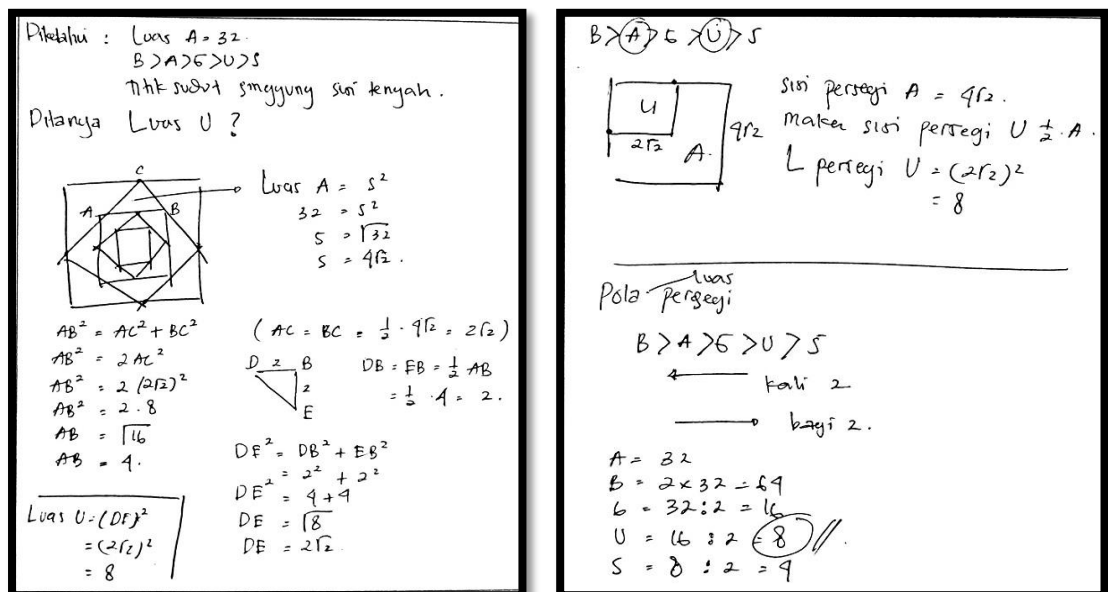 Diketahui : Luas A = 32
B > A > G > U > S
Titik sudut singgung sisi tengah.
Ditanya Luas U ?
C
A B
Luas A = s²
32 = s²
s = √32
s = 4√2.
AB² = AC² + BC² (AC = BC = ½ · 4√2 = 2√2)
AB² = 2AC²
AB² = 2 (2√2)²
AB² = 2 . 8
AB = √16
AB = 4.
D 2 B
2
E
DB = EB = ½ AB
= ½ . 4 = 2.
DE² = DB² + EB²
= 2² + 2²
DE² = 4 + 4
DE = √8
DE = 2√2.
Luas U = (DE)²
= (2√2)²
= 8
B > A > G > U > S
U
2√2
A.
4√2
sisi persegi A = 4√2.
maka sisi persegi U ½ . A.
L persegi U = (2√2)²
= 8
Pola luas persegi
B > A > G > U > S
kali 2
bagi 2.
A = 32
B = 2 x 32 = 64
G = 32 : 2 = 16
U = 16 : 2 = 8 //.
S = 8 : 2 = 4